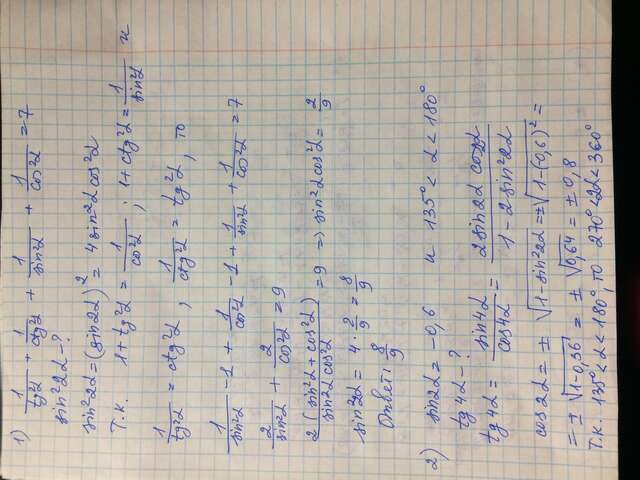 1) 1/tg²α + 1/ctg²α + 1/sin²α + 1/cos²α = 7
sin²2α - ?
sin²2α = (sin2α)² = 4sin²α cos²α
Т.к. 1 + tg²α = 1/cos²α ; 1 + ctg²α = 1/sin²α и
1/tg²α = ctg²α , 1/ctg²α = tg²α , то
1/sin²α - 1 + 1/cos²α - 1 + 1/sin²α + 1/cos²α = 7
2/sin²α + 2/cos²α = 9
2(sin²α + cos²α)/sin²α cos²α = 9 => sin²α cos²α = 2/9
sin²2α = 4 · 2/9 = 8/9
Ответ: 8/9
2) sin2α = -0,6 и 135° < α < 180°
tg4α - ?
tg4α = sin4α/cos4α = 2sin2α cos2α/1 - 2sin²2α
cos2α = ± √1-sin²2α = ± √1-(-0,6)² =
= ± √1-0,36 = ± √0,64 = ± 0,8
Т.к. 135° < α < 180°, то 270° < 2α < 360°